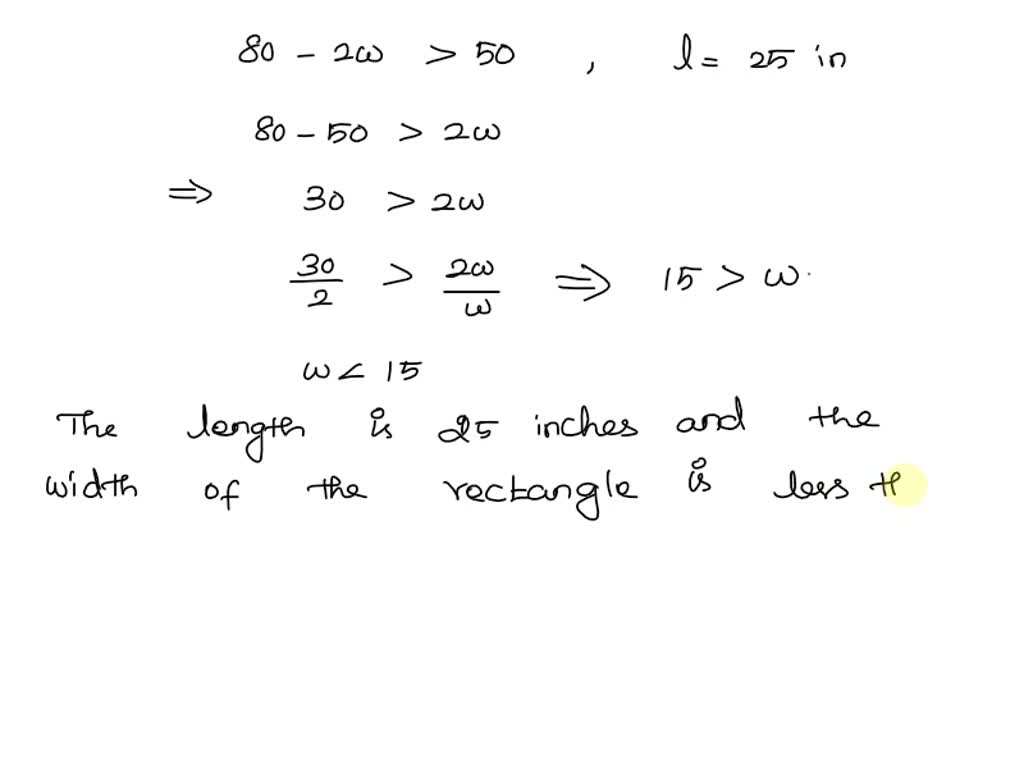 80 - 2w > 50 , l = 25 in
80 - 50 > 2w
⇒ 30 > 2w
30/2 > 2w/w ⇒ 15 > w.
w < 15
The length is 25 inches and the
width of the rectangle is less th